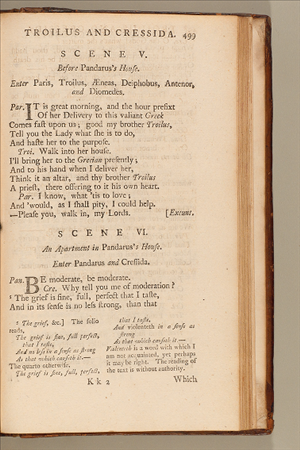 TROILUS AND CRESSIDA. 499
SCENE V.
Before Pandarus's House.
Enter Paris, Troilus, Æneas, Deiphobus, Antenor,
and Diomedes.
Par. IT is great morning, and the hour prefixt
Of her Delivery to this valiant Greek
Comes fast upon us; good my brother Troilus,
Tell you the Lady what she is to do,
And haste her to the purpose.
Troi. Walk into her house.
I'll bring her to the Grecian presently;
And to his hand when I deliver her,
Think it an altar, and thy brother Troilus
A priest, there offering to it his own heart.
Par. I know, what 'tis to love;
And 'would, as I shall pity, I could help.
—Please you, walk in, my Lords. [Exeunt.
SCENE VI.
An Apartment in Pandarus's House.
Enter Pandarus and Cressida.
Pan. BE moderate, be moderate.
Cre. Why tell you me of moderation?
¹ The grief is fine, full, perfect that I taste,
And in its sense is no less strong, than that
¹ The grief, &c.] The folio
reads,
The grief is fine, full perfect,
that I taste,
And no less in a sense as strong
As that which causeth it.—
The quarto otherwise.
The grief is fine, full, perfect,
that I taste,
And violenteth in a sense as
strong
As that which causeth it—
Violenteth is a word with which I
am not acquainted, yet perhaps
it may be right. The reading of
the text is without authority.
Kk 2
Which